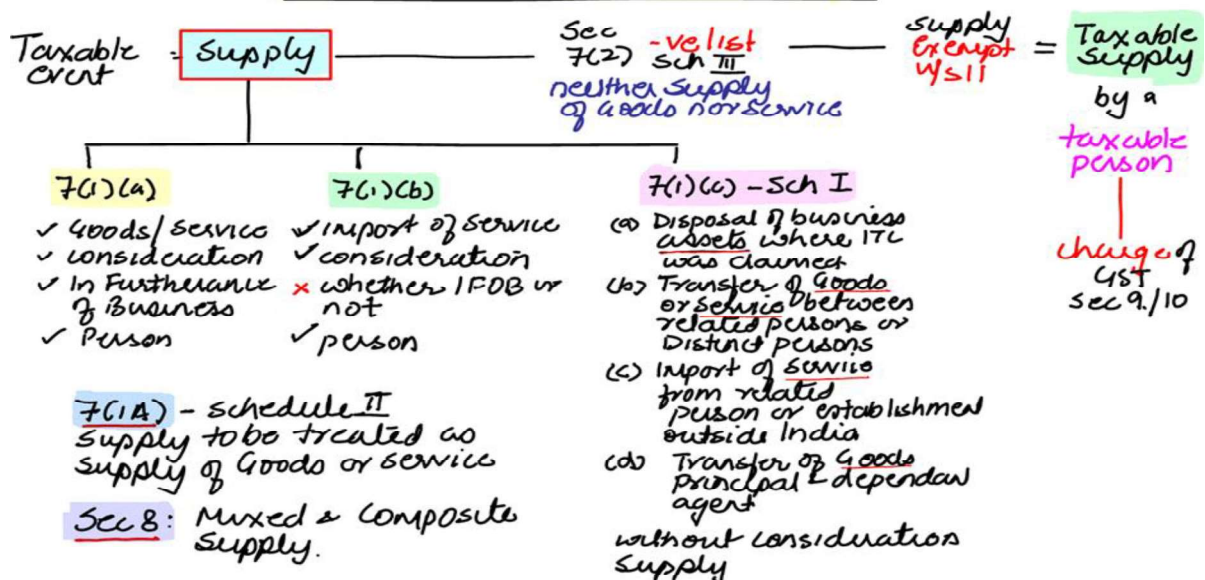 Taxable event = Supply
Sec 7(2) -ve list Sch III
neither supply
of Goods nor service
supply
exempt
u/s 11
= Taxable
Supply
by a
taxable
person
charge of
GST
Sec 9./10
7(1)(a)
✓ Goods/Service
✓ consideration
✓ In Furtherance
of Business
✓ Person
7(1)(b)
✓ import of service
✓ consideration
× whether IFOB or
not
✓ person
7(1)(c) - Sch I
(a) Disposal of business
assets where ITC
was claimed
(b) Transfer of Goods
or service between
related persons or
Distinct persons
(c) Import of service
from related
person or establishment
outside India
(d) Transfer of Goods
principal & dependan
agent
without consideration
supply
7(1A) - schedule II
supply to be treated as
supply of Goods or service
Sec 8: Mixed & Composite
Supply.